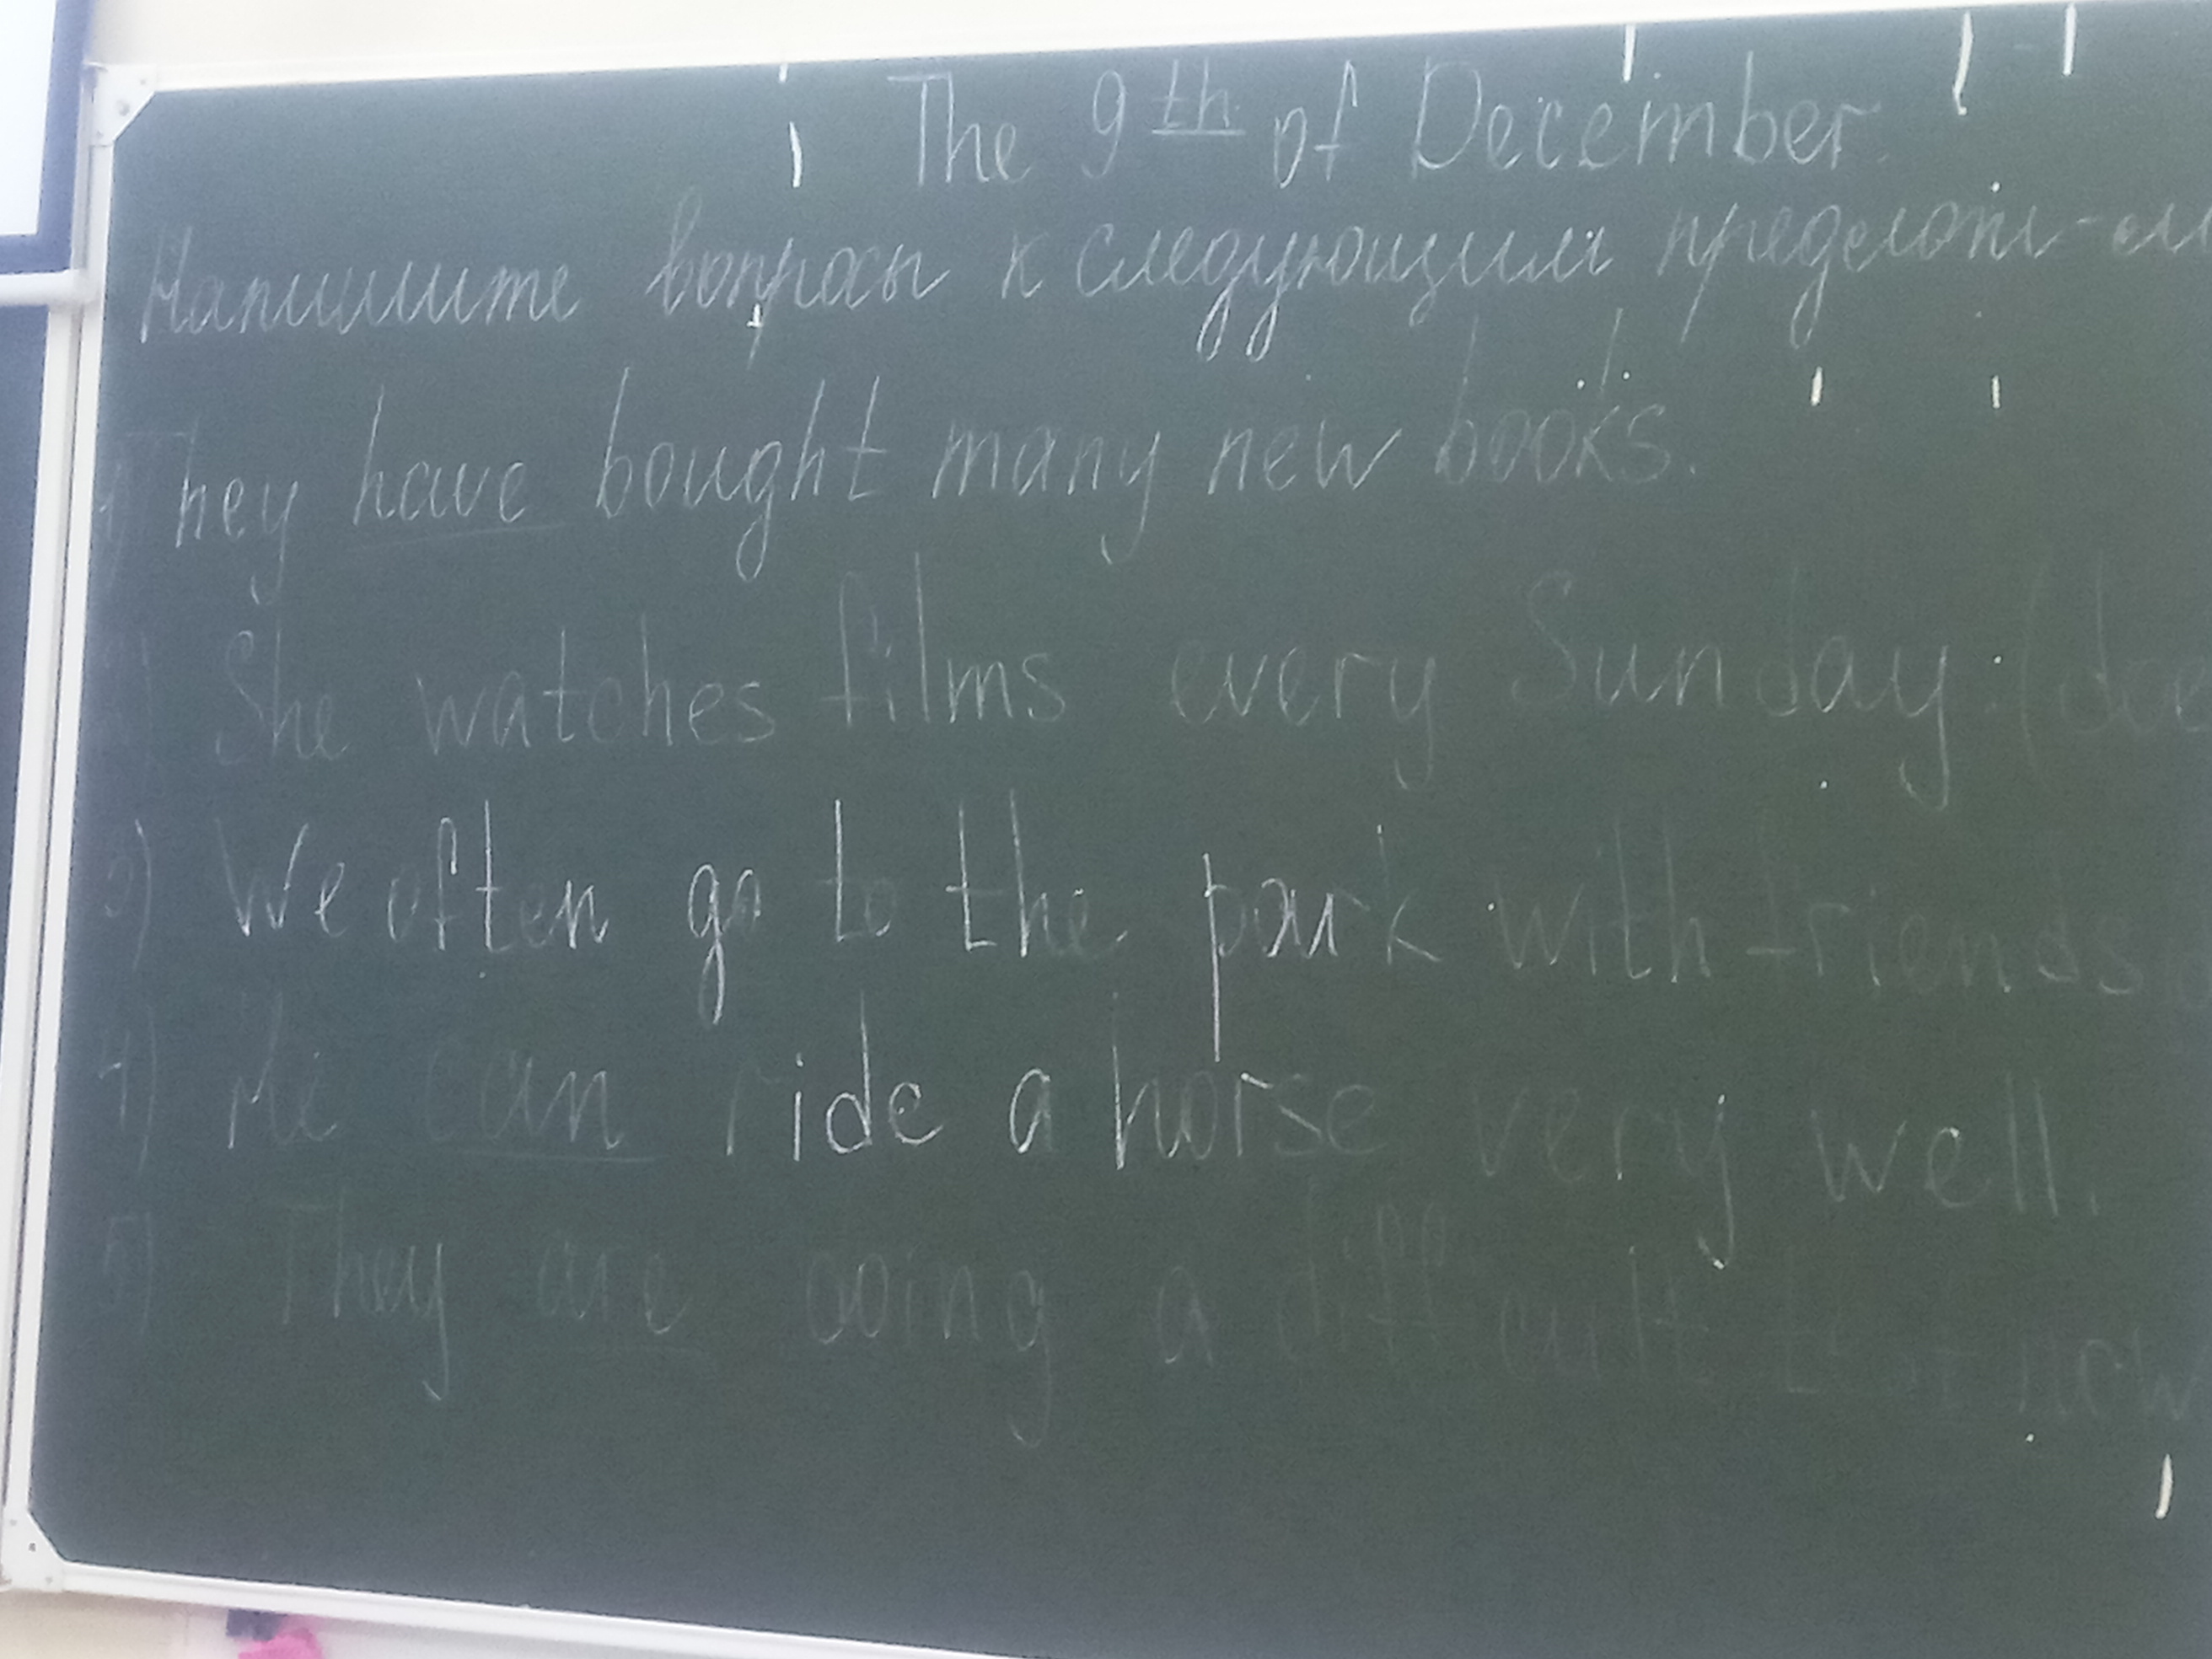 The 9th of December.
Напишите вопросы к следующим
1) They have bought many new books.
2) She watches films every Sunday. (doe
3) We often go to the park with friends
4) He can ride a horse very well.
5) They are doing a difficult test now